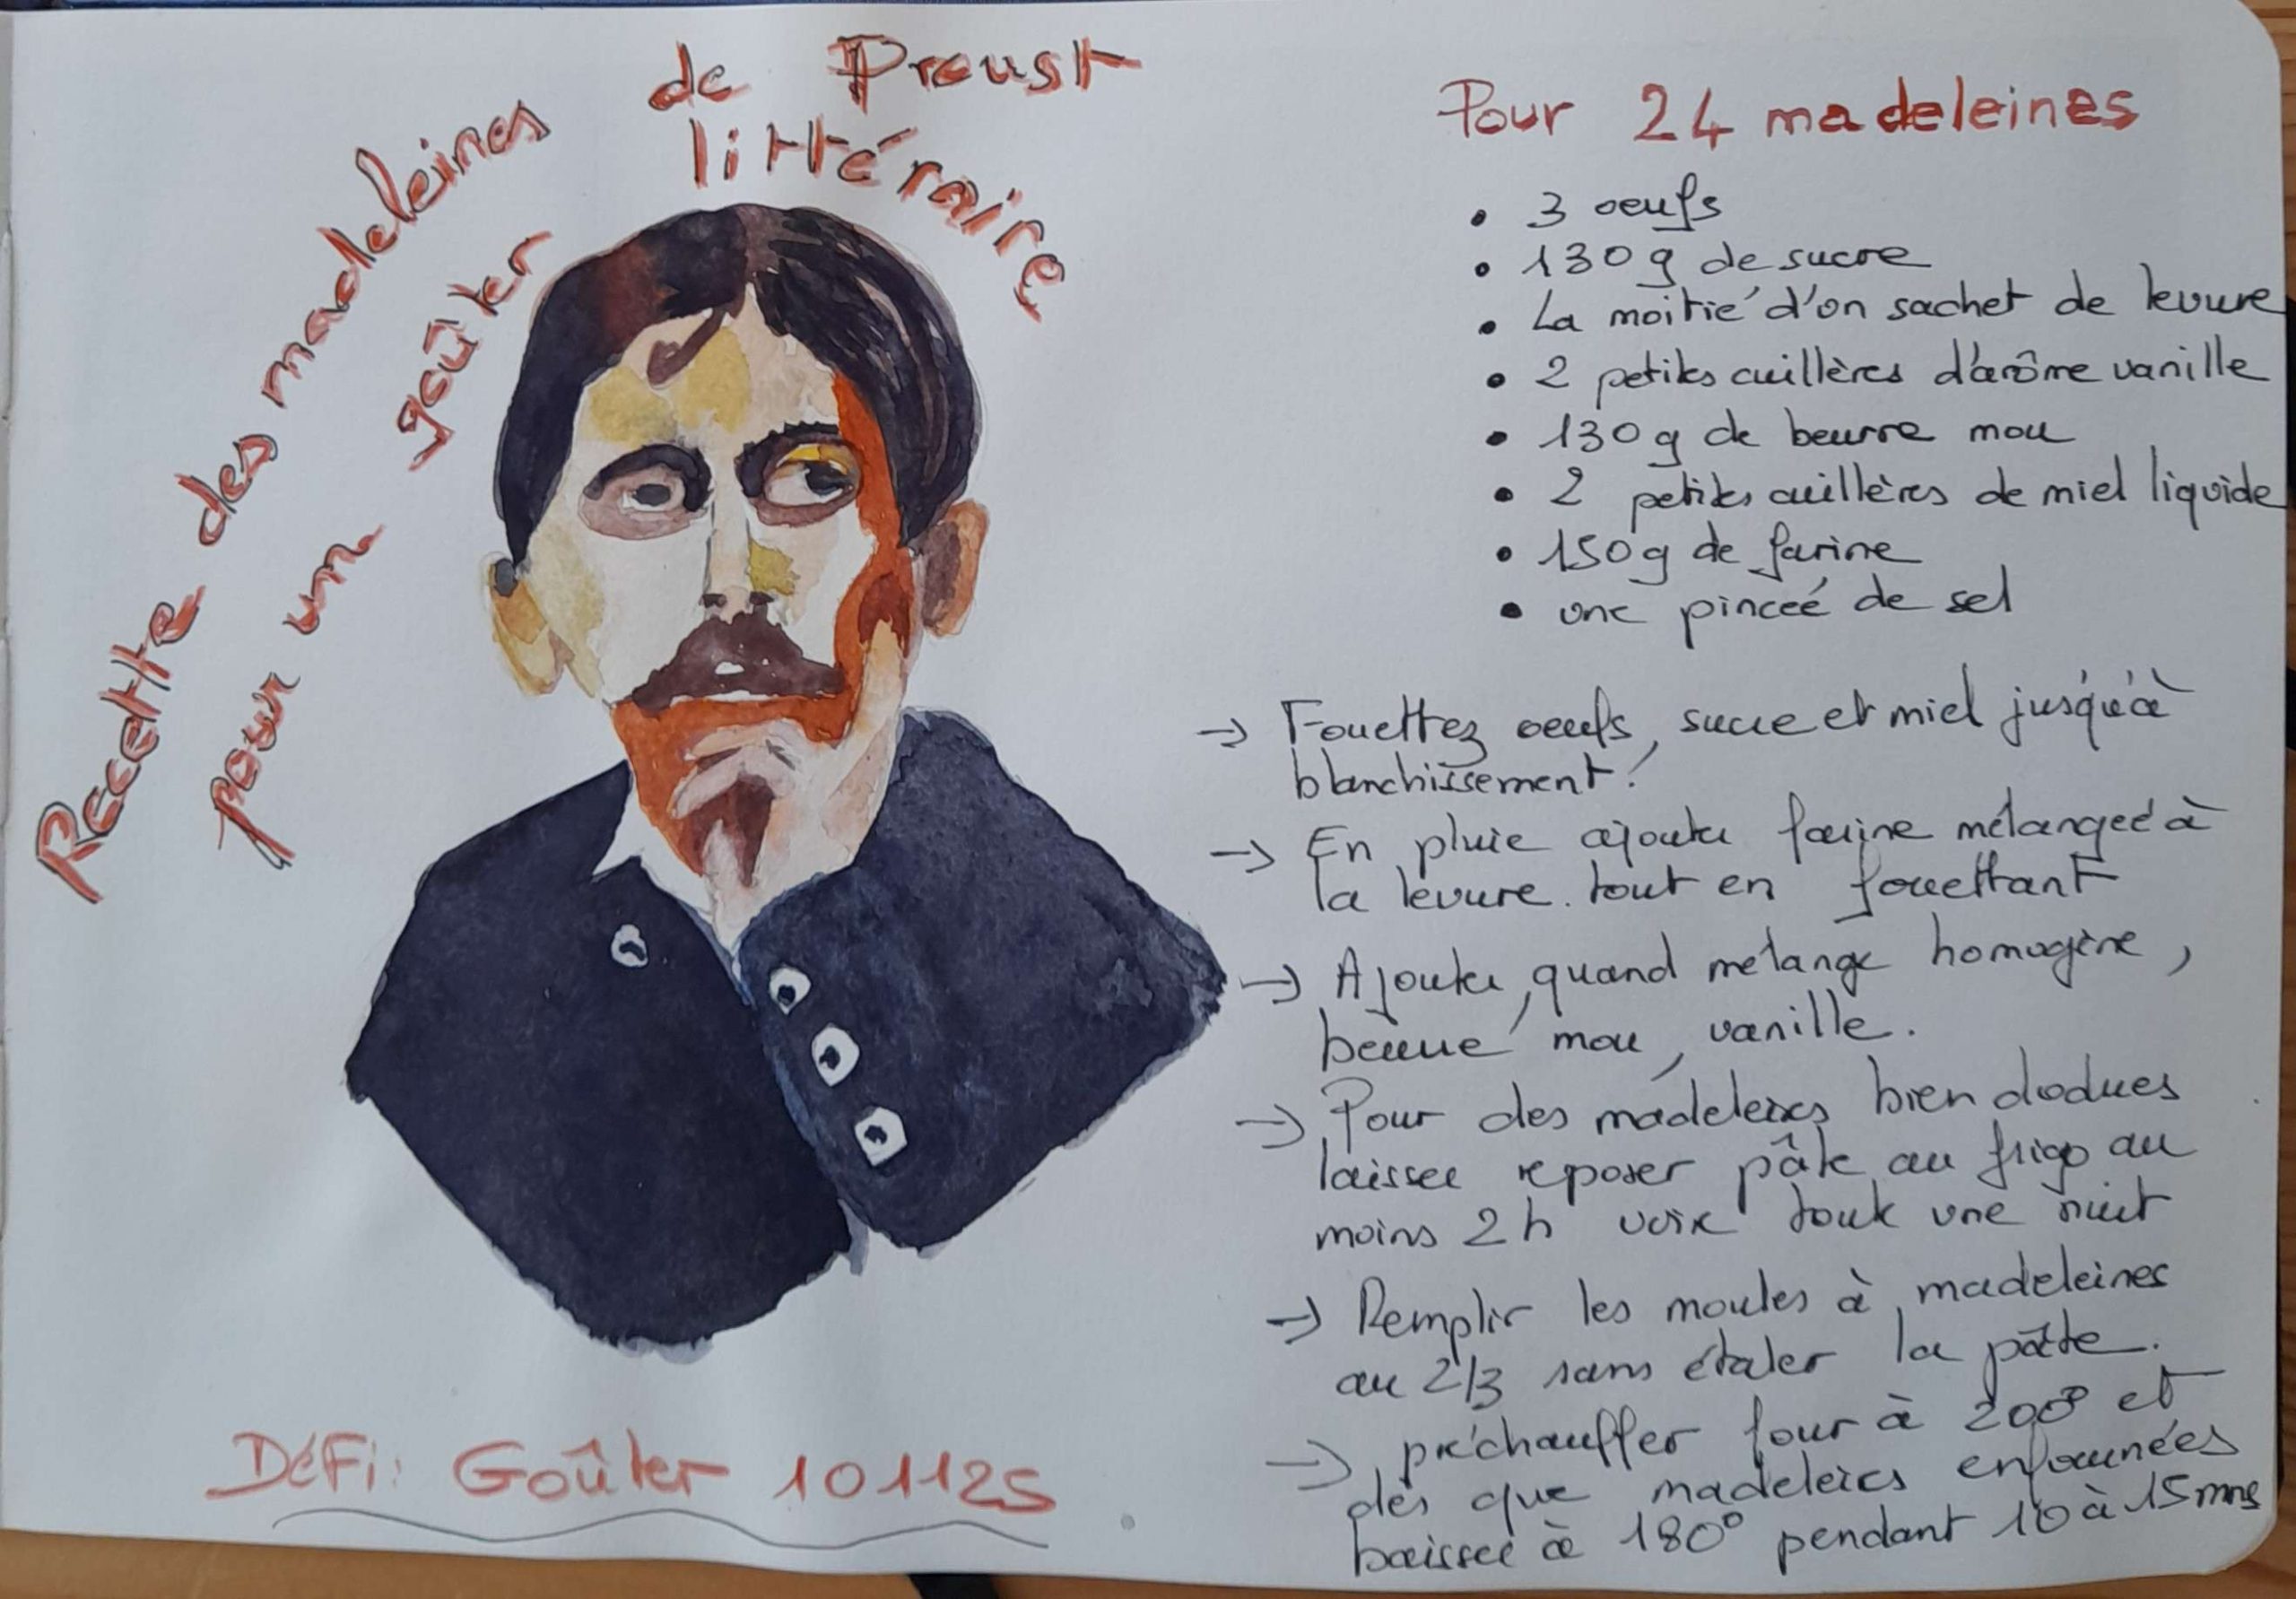 Recette des madeleines de Proust
pour un goûter littéraire
Pour 24 madeleines
• 3 oeufs
• 130g de sucre
• La moitié d'un sachet de levure
• 2 petites cuillères d'arôme vanille
• 130g de beurre mou
• 2 petites cuillères de miel liquide
• 150g de farine
• une pinceé de sel
→ Fouettez oeufs, sucre et miel jusqu'à
blanchissement.
→ En pluie ajouter farine mélangeé à
la levure. tout en fouettant
→ Ajouter, quand mélange homogène,
beurre mou, vanille.
→ Pour des madeleines bien dodues
laisser reposer pâte au frigo au
moins 2h voir toute une nuit
→ Remplir les moules à madeleines
au 2/3 sans étaler la pâte.
→ préchauffer four à 200° et
dès que madeleines enfournées
baisser à 180° pendant 10 à 15 mns
DéFi: Goûter 101125